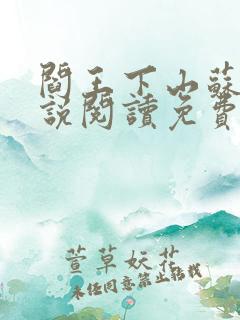 閻王下山蘇
說閱讀免費
萱草妖花
未经同意禁止转载